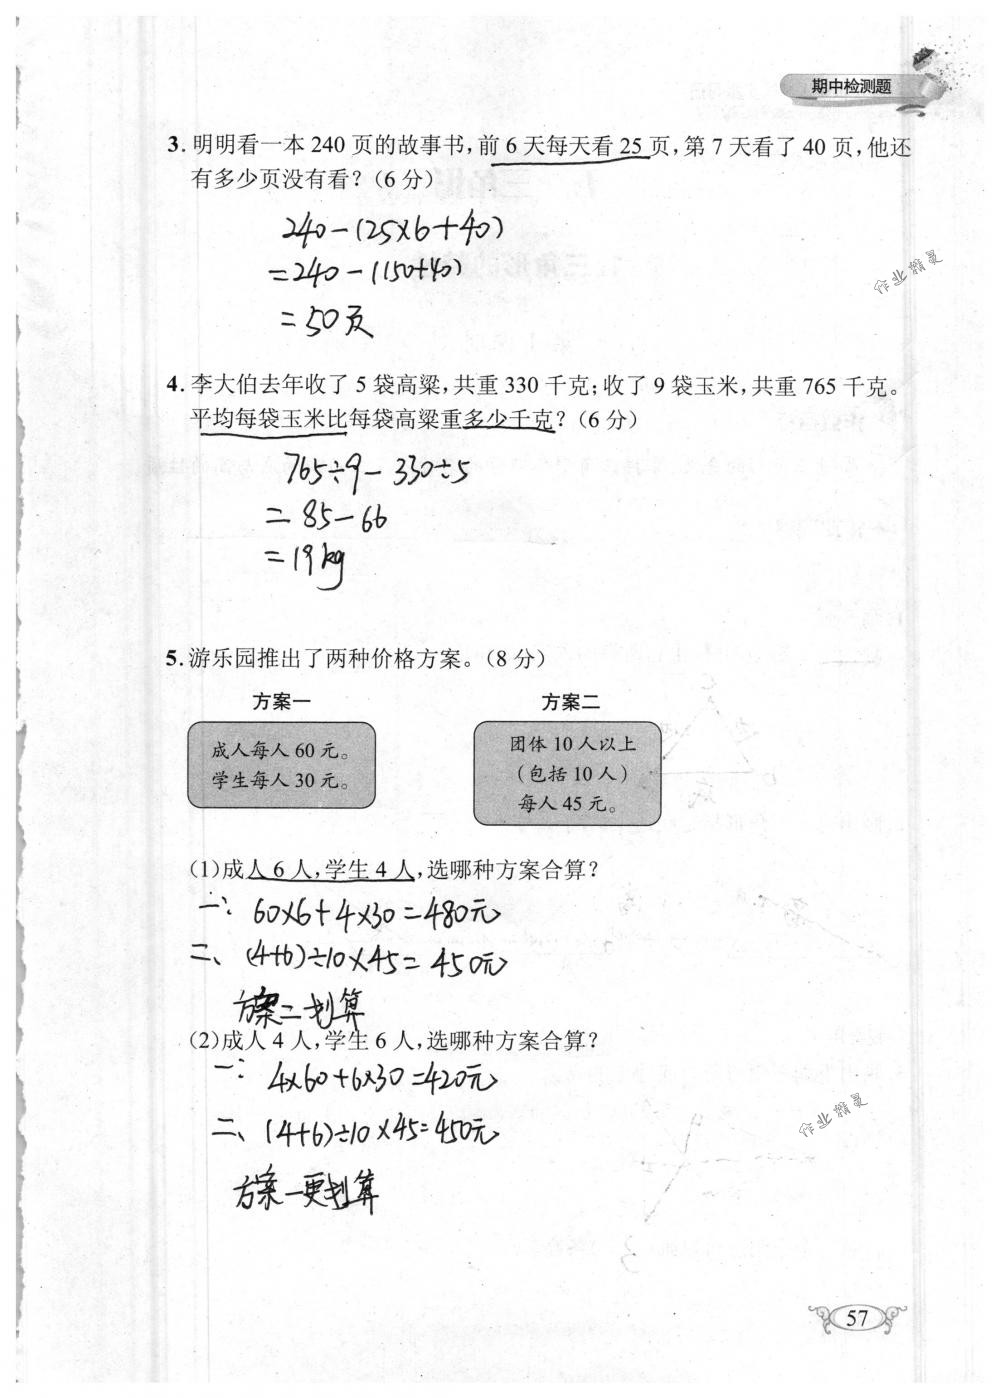 期中检测题
3. 明明看一本 240 页的故事书,前 6 天每天看 25 页,第 7 天看了 40 页,他还
有多少页没有看?(6 分)
240-(25×6+40)
=240-(150+40)
=50页
作业精灵
4. 李大伯去年收了 5 袋高粱,共重 330 千克;收了 9 袋玉米,共重 765 千克。
平均每袋玉米比每袋高粱重多少千克?(6 分)
765÷9-330÷5
=85-66
=19kg
5. 游乐园推出了两种价格方案。(8 分)
方案一 方案二
成人每人 60 元。
学生每人 30 元。
团体 10 人以上
(包括 10 人)
每人 45 元。
(1)成人 6 人,学生 4 人,选哪种方案合算?
一: 60×6+4×30=480元
二、(4+6)÷10×45=450元
方案二划算
(2)成人 4 人,学生 6 人,选哪种方案合算?
一: 4×60+6×30=420元
二、(4+6)÷10×45=450元
作业精灵
方案一更划算
57